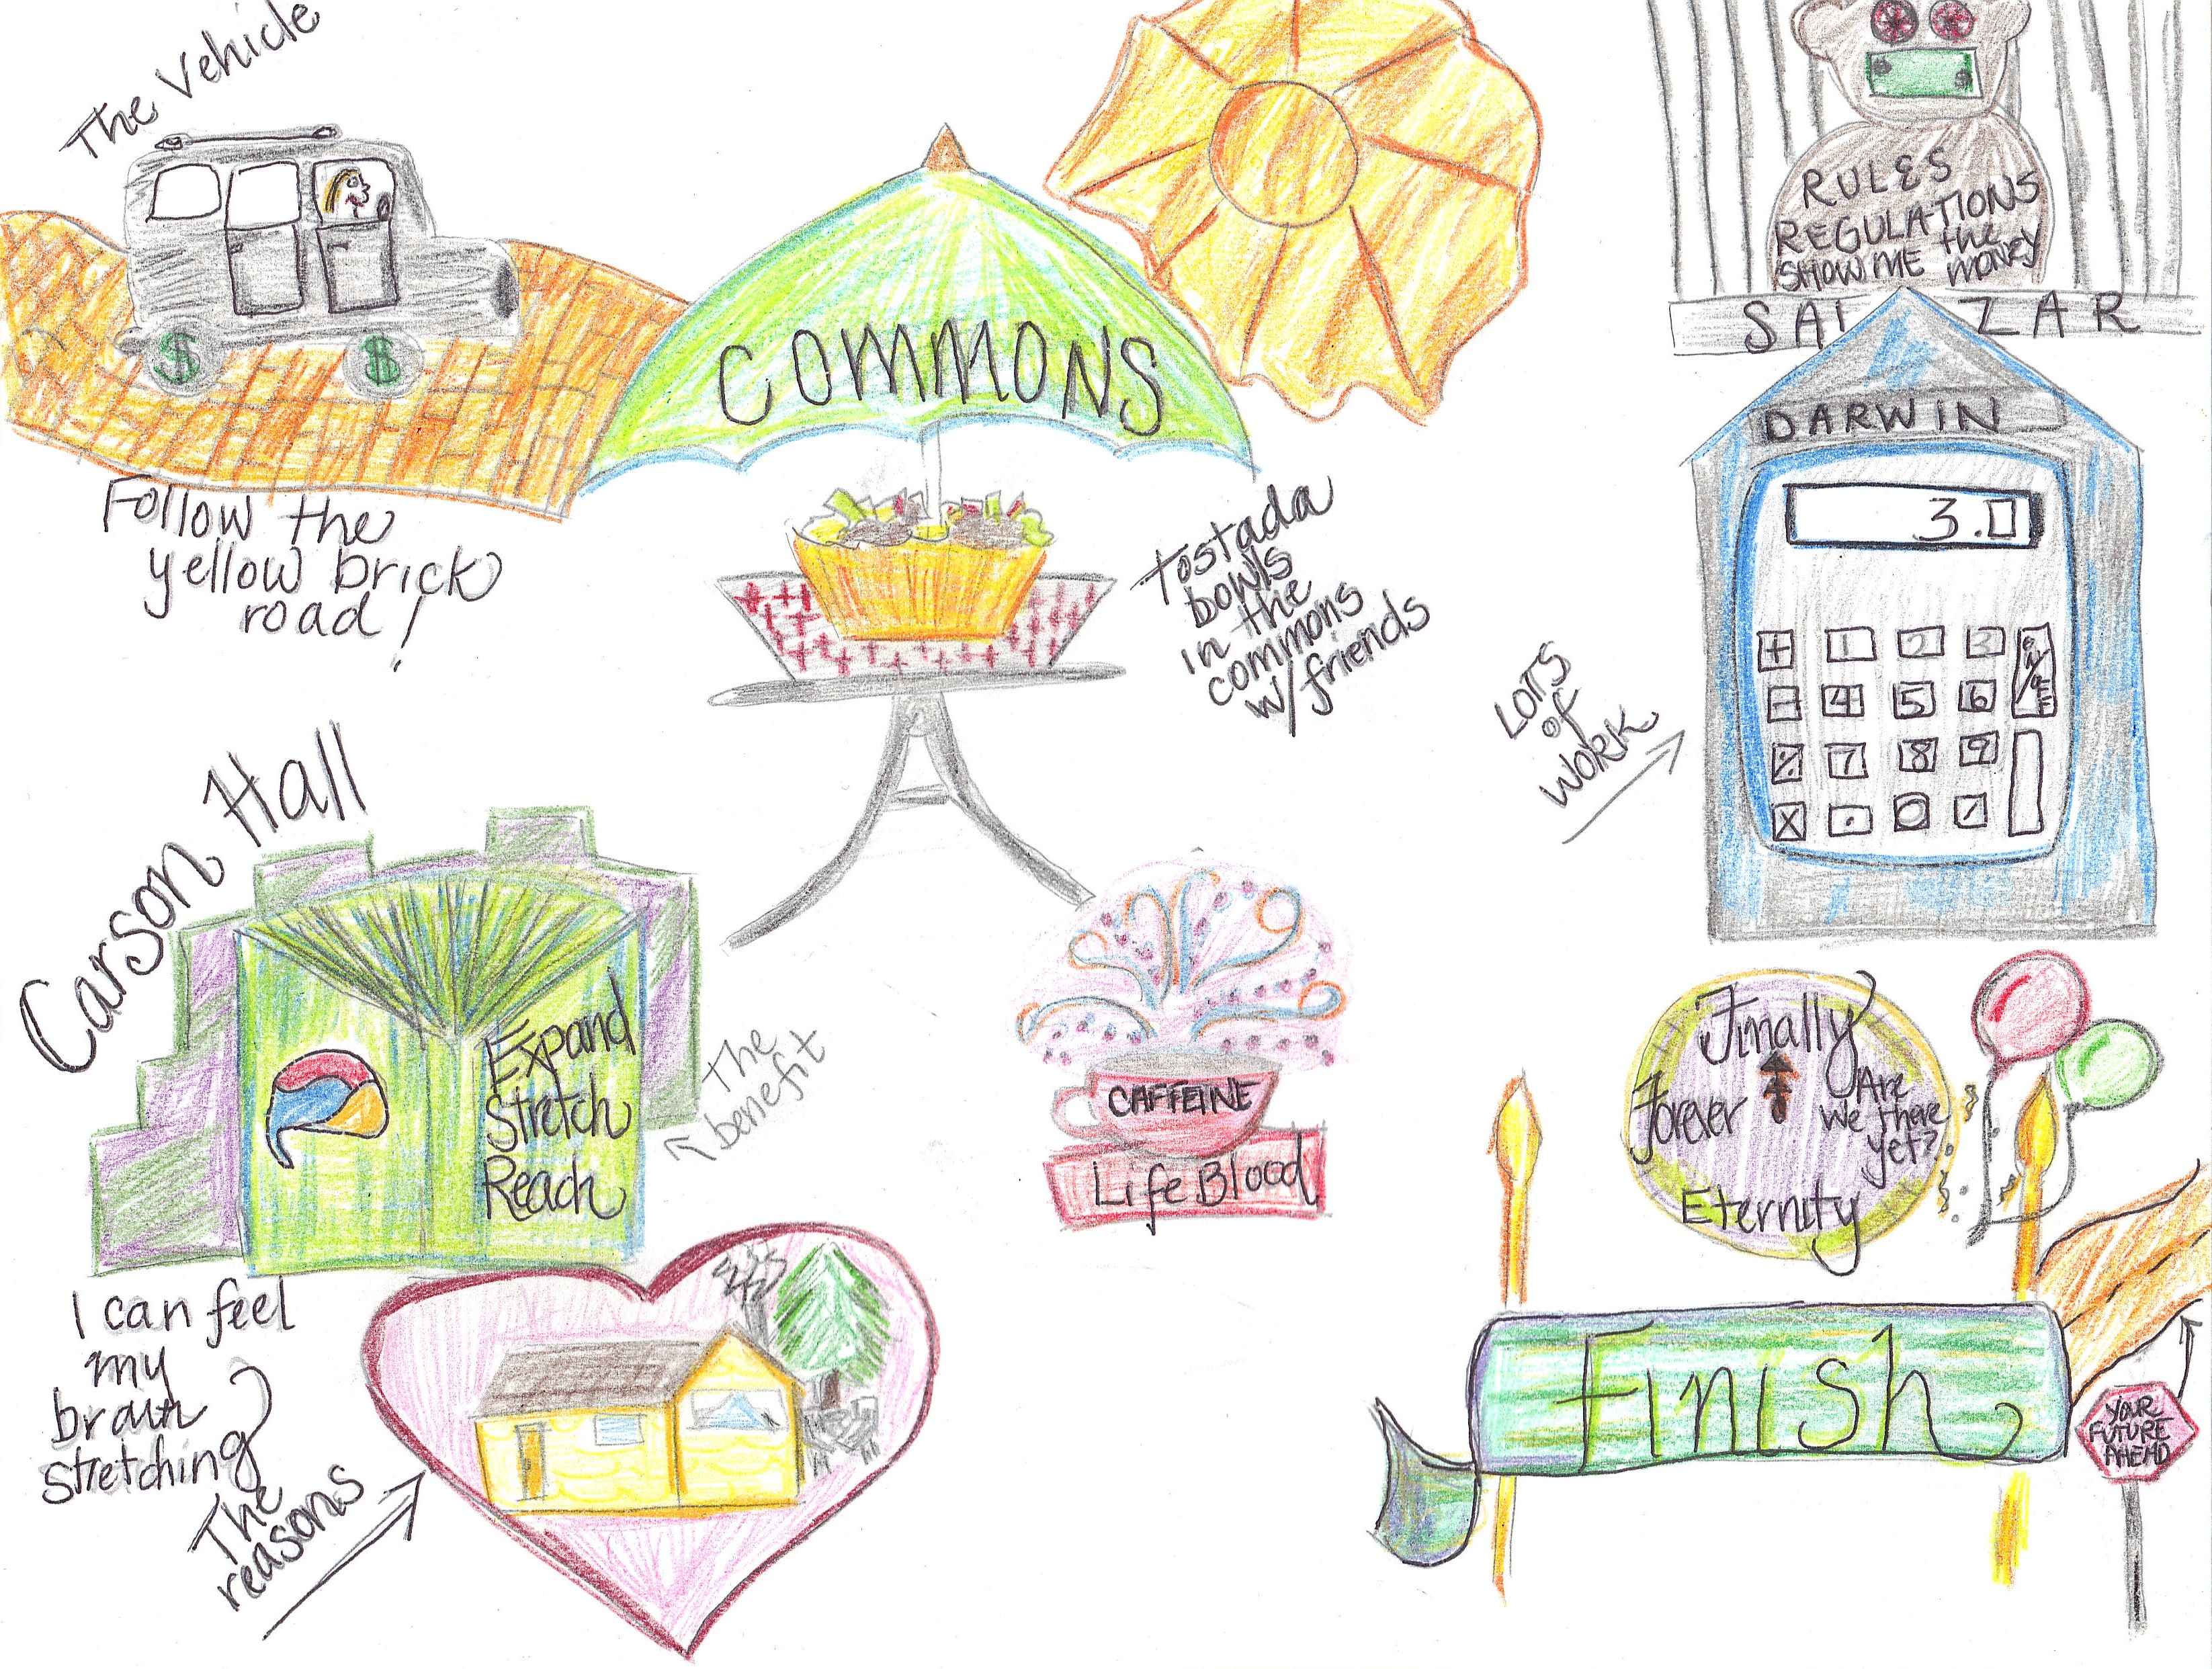 The Vehicle
$ $
Follow the
yellow brick
road!
COMMONS
Tostada
bowls
in the
commons
w/friends
RULES
REGULATIONS
SHOW ME the
MONEY
SAL ZAR
DARWIN
3.0
+ 1 2 3
- 4 5 6
% 7 8 9
X . 0 /
LOTS
of
WORK
Carson Hall
Expand
Stretch
Reach
The
benefit
I can feel
my
brain
stretching
The
reasons
CAFFEINE
Life Blood
Finally
Forever
Are
we there
yet?
Eternity
Finish
YOUR
FUTURE
AHEAD